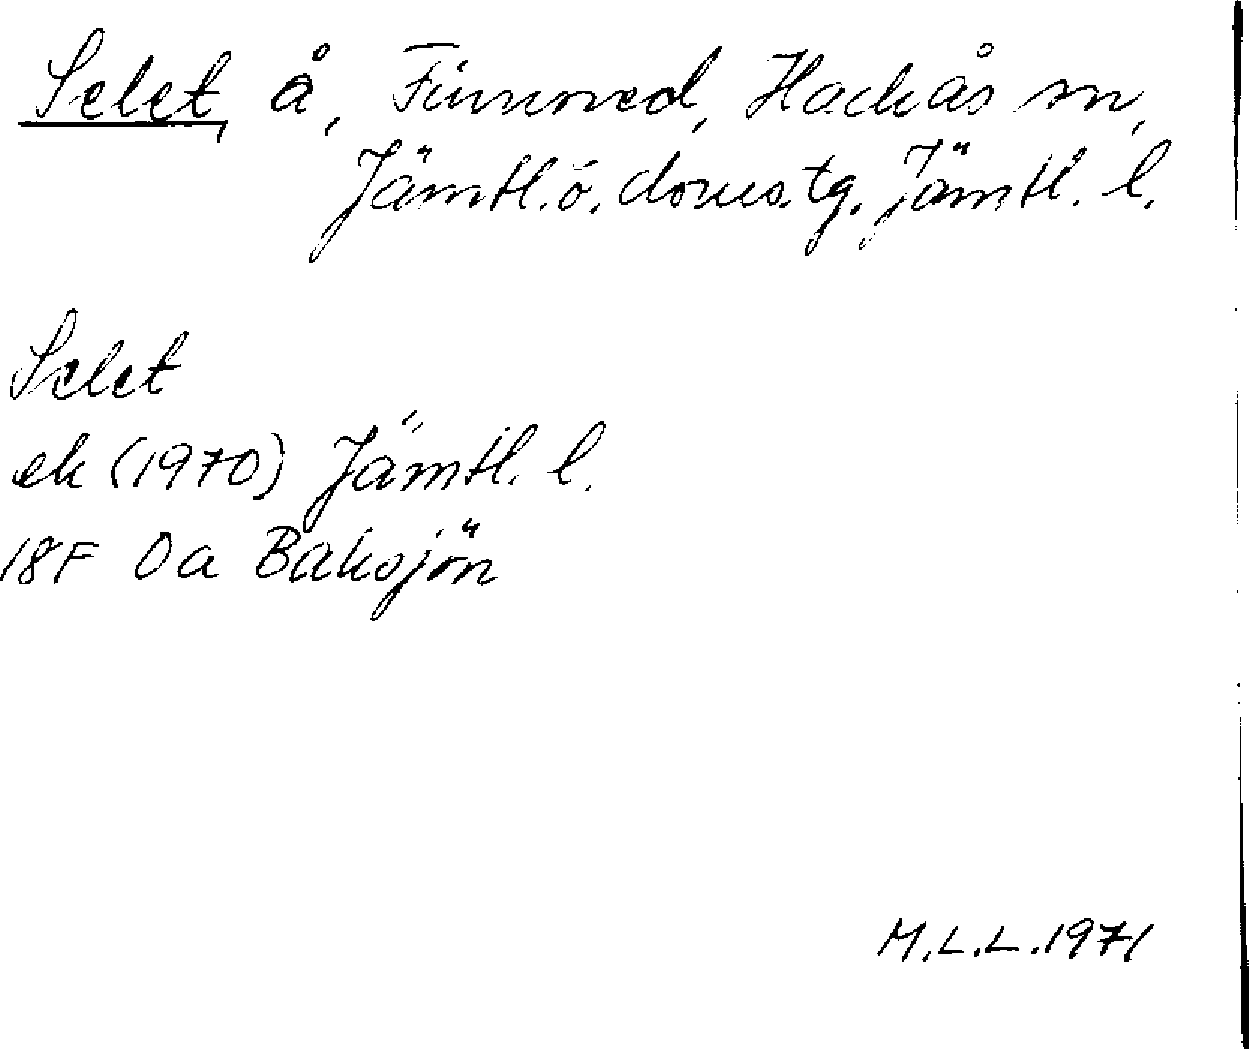 Selet, å, Finnned, Hackås sn,
Jämtl. ö. doms. tg. Jämtl. l.
Selet
ek (1970) Jämtl. l.
18F 0a Baksjön
M.L.L. 1971